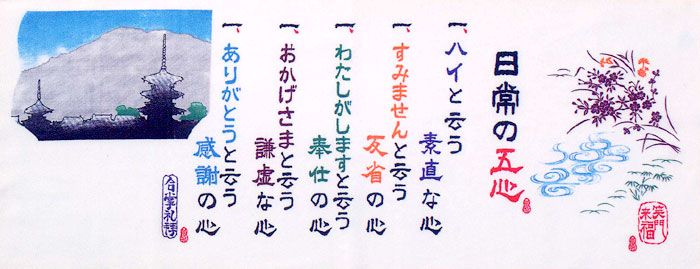 笑門
来福
日常の五心
一、ハイと云う
素直な心
一、すみませんと云う
反省の心
一、わたしがしますと云う
奉仕の心
一、おかげさまと云う
謙虚な心
一、ありがとうと云う
感謝の心
合掌礼